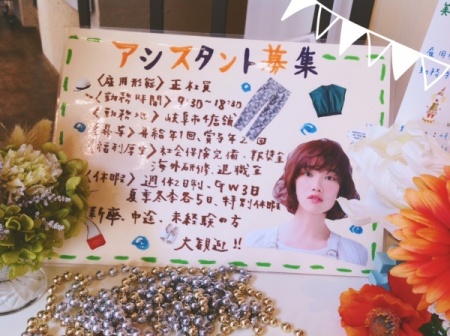 アシスタント募集
〈雇用形態〉正社員
〈勤務時間〉9:30~18:30
〈勤務地〉岐阜市内店舗
昇給年1回、賞与年2回
福利厚生〉社会保険完備、報奨金
海外研修、退職金
〈休暇〉週休2日制、GW3日
夏季冬季各5日、特別休暇
新卒、中途、未経験の方
大歓迎!!